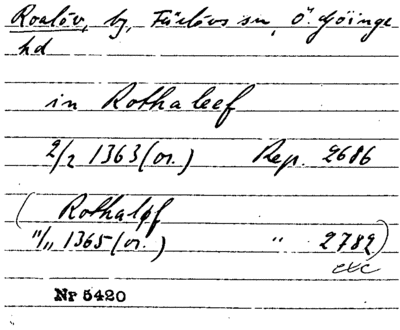 Roalöv, by, Färlövs sn, Ö. Göinge
hd
in Rothaleef
2/2 1363 (or.) Rep. 2686
( Rothaløf
"/" 1365 (or.) " 2782 )
exc
Nr 5420